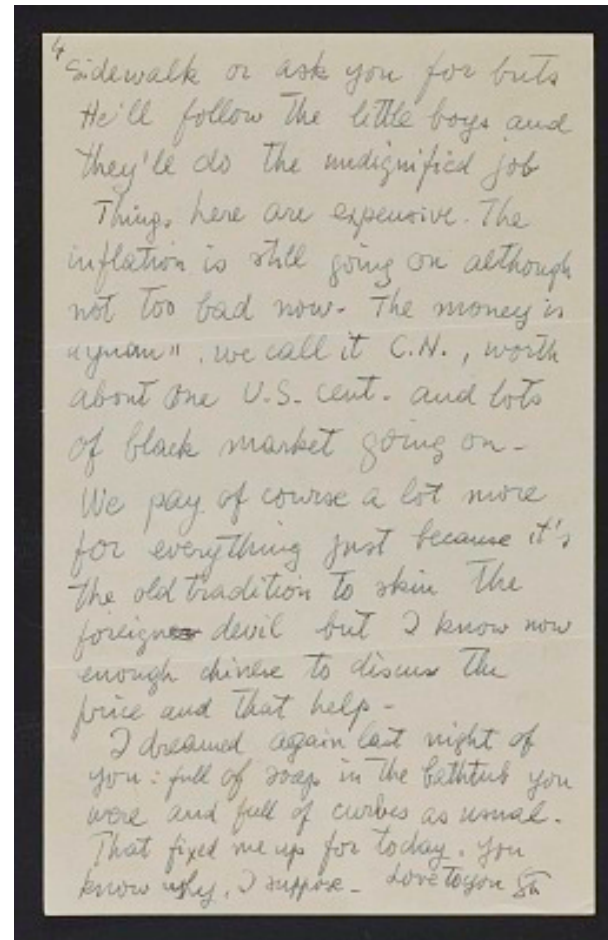 4
Sidewalk or ask you for buts
He'll follow the little boys and
they'll do the undignified job
Things here are expensive. The
inflation is still going on although
not too bad now. The money is
"yuan". we call it C.N., worth
about one U.S. cent. and lots
of black market going on -
We pay of course a lot more
for everything just because it's
the old tradition to skin the
foreign devil but I know now
enough chinese to discuss the
price and that help -
I dreamed again last night of
you: full of soap in the bathtub you
were and full of curbes as usual.
That fixed me up for today. you
know why, I suppose - Love to you